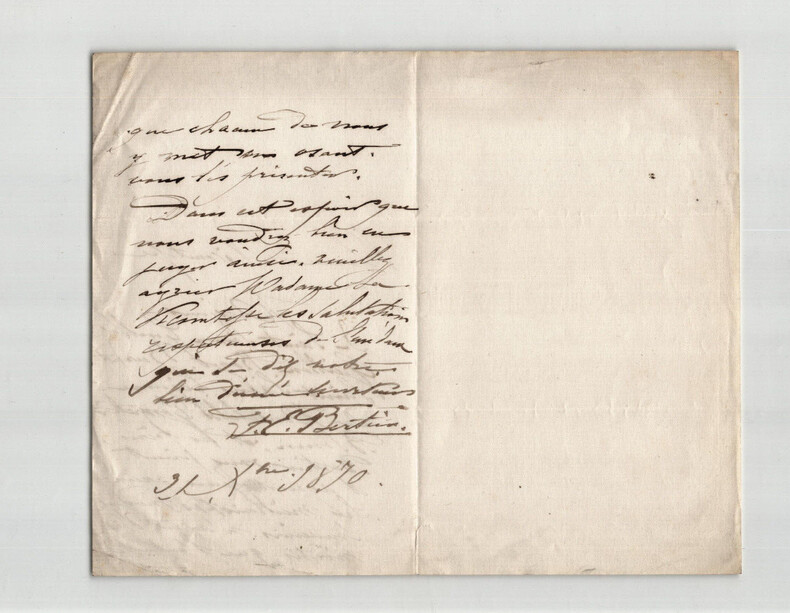 que chacun de nous
y met en osant
vous les présenter.
Dans cet espoir que
vous voudrez bien en
juger ainsi. veuillez
agréer Madame la
Comtesse les salutations
respectueuses de
qui se dit votre
bien dévoué serviteur
F. E. Bertin.
Xbre 1870.